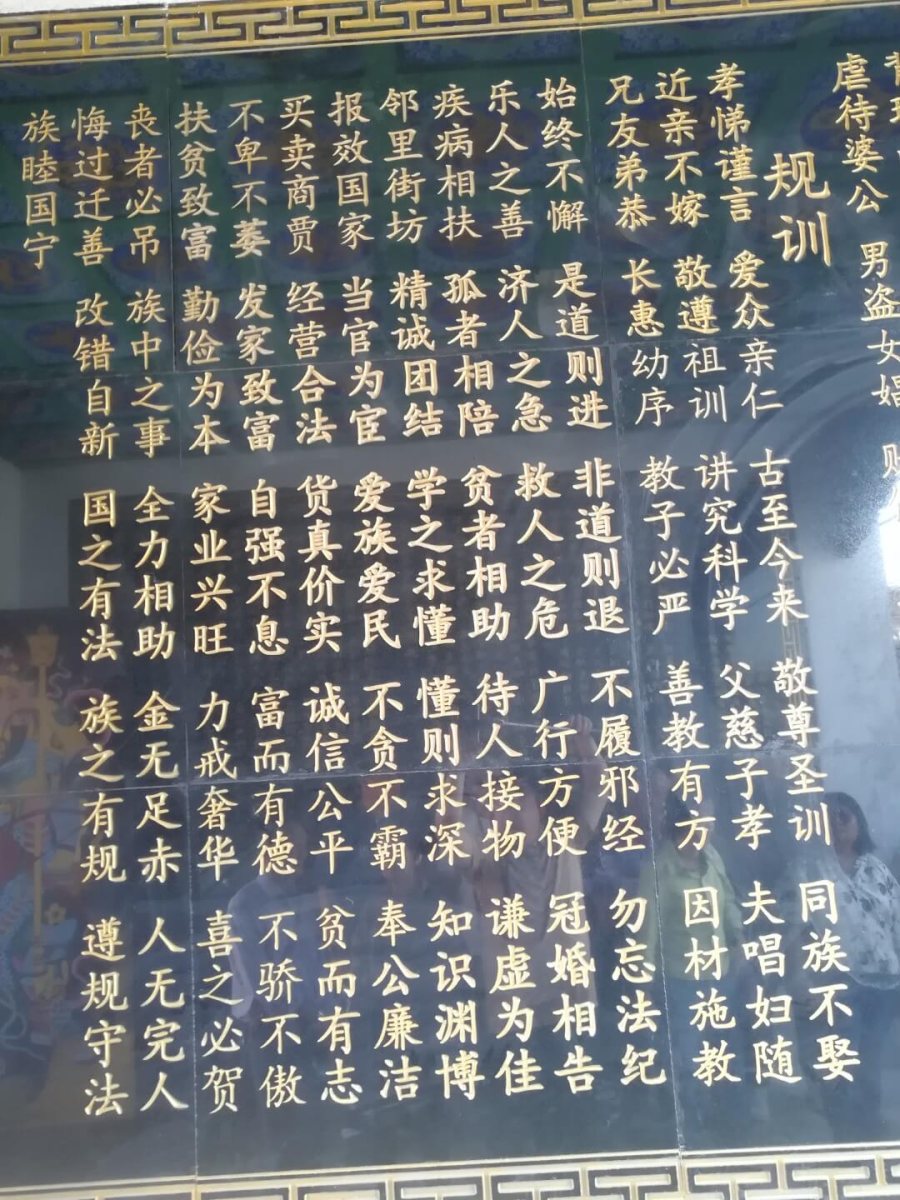 虐待婆公 男盗女娼
规训
孝悌谨言 爱众亲仁 古至今来 敬尊圣训 同族不娶
近亲不嫁 敬遵祖训 讲究科学 父慈子孝 夫唱妇随
兄友弟恭 长惠幼序 教子必严 善教有方 因材施教
始终不懈 是道则进 非道则退 不履邪经 勿忘法纪
乐人之善 济人之急 救人之危 广行方便 冠婚相告
疾病相扶 孤者相陪 贫者相助 待人接物 谦虚为佳
邻里街坊 精诚团结 学之求懂 懂则求深 知识渊博
报效国家 当官为宦 爱族爱民 不贪不霸 奉公廉洁
买卖商贾 经营合法 货真价实 诚信公平 贫而有志
不卑不萎 发家致富 自强不息 富而有德 不骄不傲
扶贫致富 勤俭为本 家业兴旺 力戒奢华 喜之必贺
丧者必吊 族中之事 全力相助 金无足赤 人无完人
悔过迁善 改错自新 国之有法 族之有规 遵规守法
族睦国宁